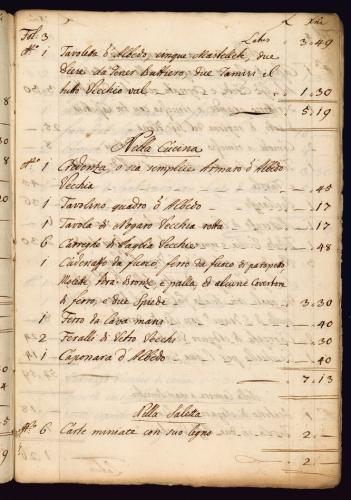 Fol. 3 Latus 3.49
N.° 1 Tavoletta d'Albedo, cinque Martelieli, due
due Tamisi el
tutti Vecchio val 1.30
5.19
Nella Cucina
N.° 1 Credenza, o sia semplice Armaro d'Albedo
Vechia .45
1 Tavolino quadro d'Albedo .17
1 Tavola di Nogaro Vecchia rotta .17
6 Carreghe di Paglia Vecchie .48
1 da fuoco, ferro da fuoco di
Molette, Bra-Bronze, e palla, ed alcune Covertore
di ferro, e due Spiede 3.30
1 Ferro da Lava mani .40
2 Feralli di Vetro Vecchi .30
1 Caponara d'Albedo .40
7.13
Nella Saletta
N.° 6 Carte miniate con suo legno 2.
2.